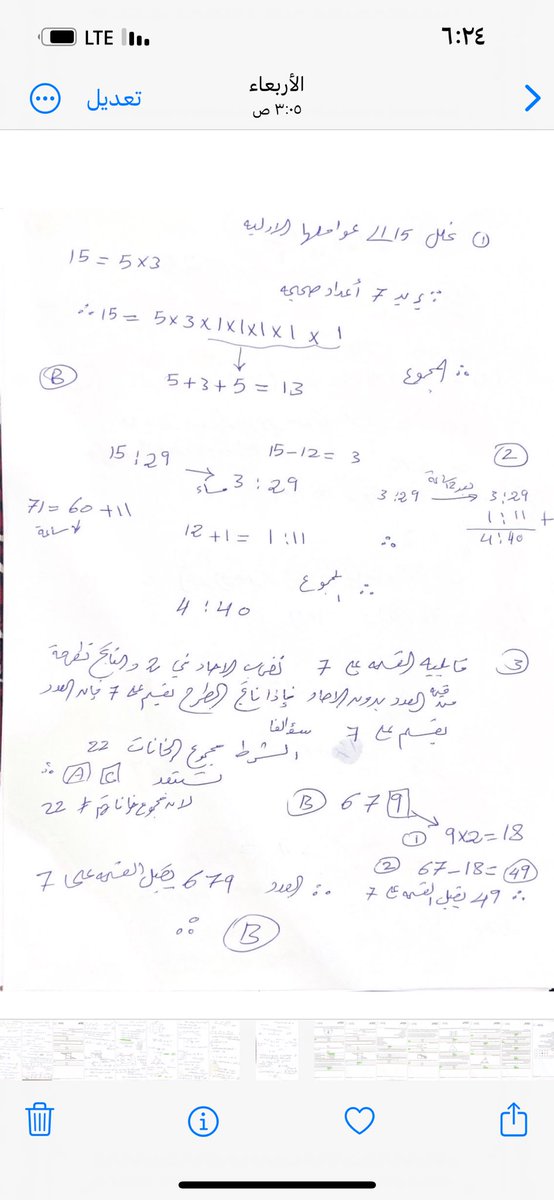 LTE
٦:٢٤
تعديل
الأربعاء
٣:٠٥ ص
① نحلل 15 إلى عواملها الأولية
15 = 5×3
∵ يريد 7 أعداد صحيحة
∴ 15 = 5×3×1×1×1×1×1
∴ المجموع
5+3+5 = 13
B
②
15:29
15-12= 3
3:29 مساءً
3:29 بعد 12 ساعة 3:29
1:11 +
4:40
71= 60+11
ساعة
12+1= 1:11
∴
∴ المجموع
4:40
③ قابلية القسمة على 7 نضرب الآحاد في 2 والناتج نطرحه
من العدد بدون الآحاد فإذا ناتج الطرح يقسم على 7 فإن العدد
يقسم على 7
الشرط مجموع الخانات 22
∴ A C تستبعد
لأن مجموع خاناتهم ≠ 22
B 679
① 9×2=18
② 67-18=49
∴ 49 يقبل القسمة على 7
∴ العدد 679 يقبل القسمة على 7
∴ B